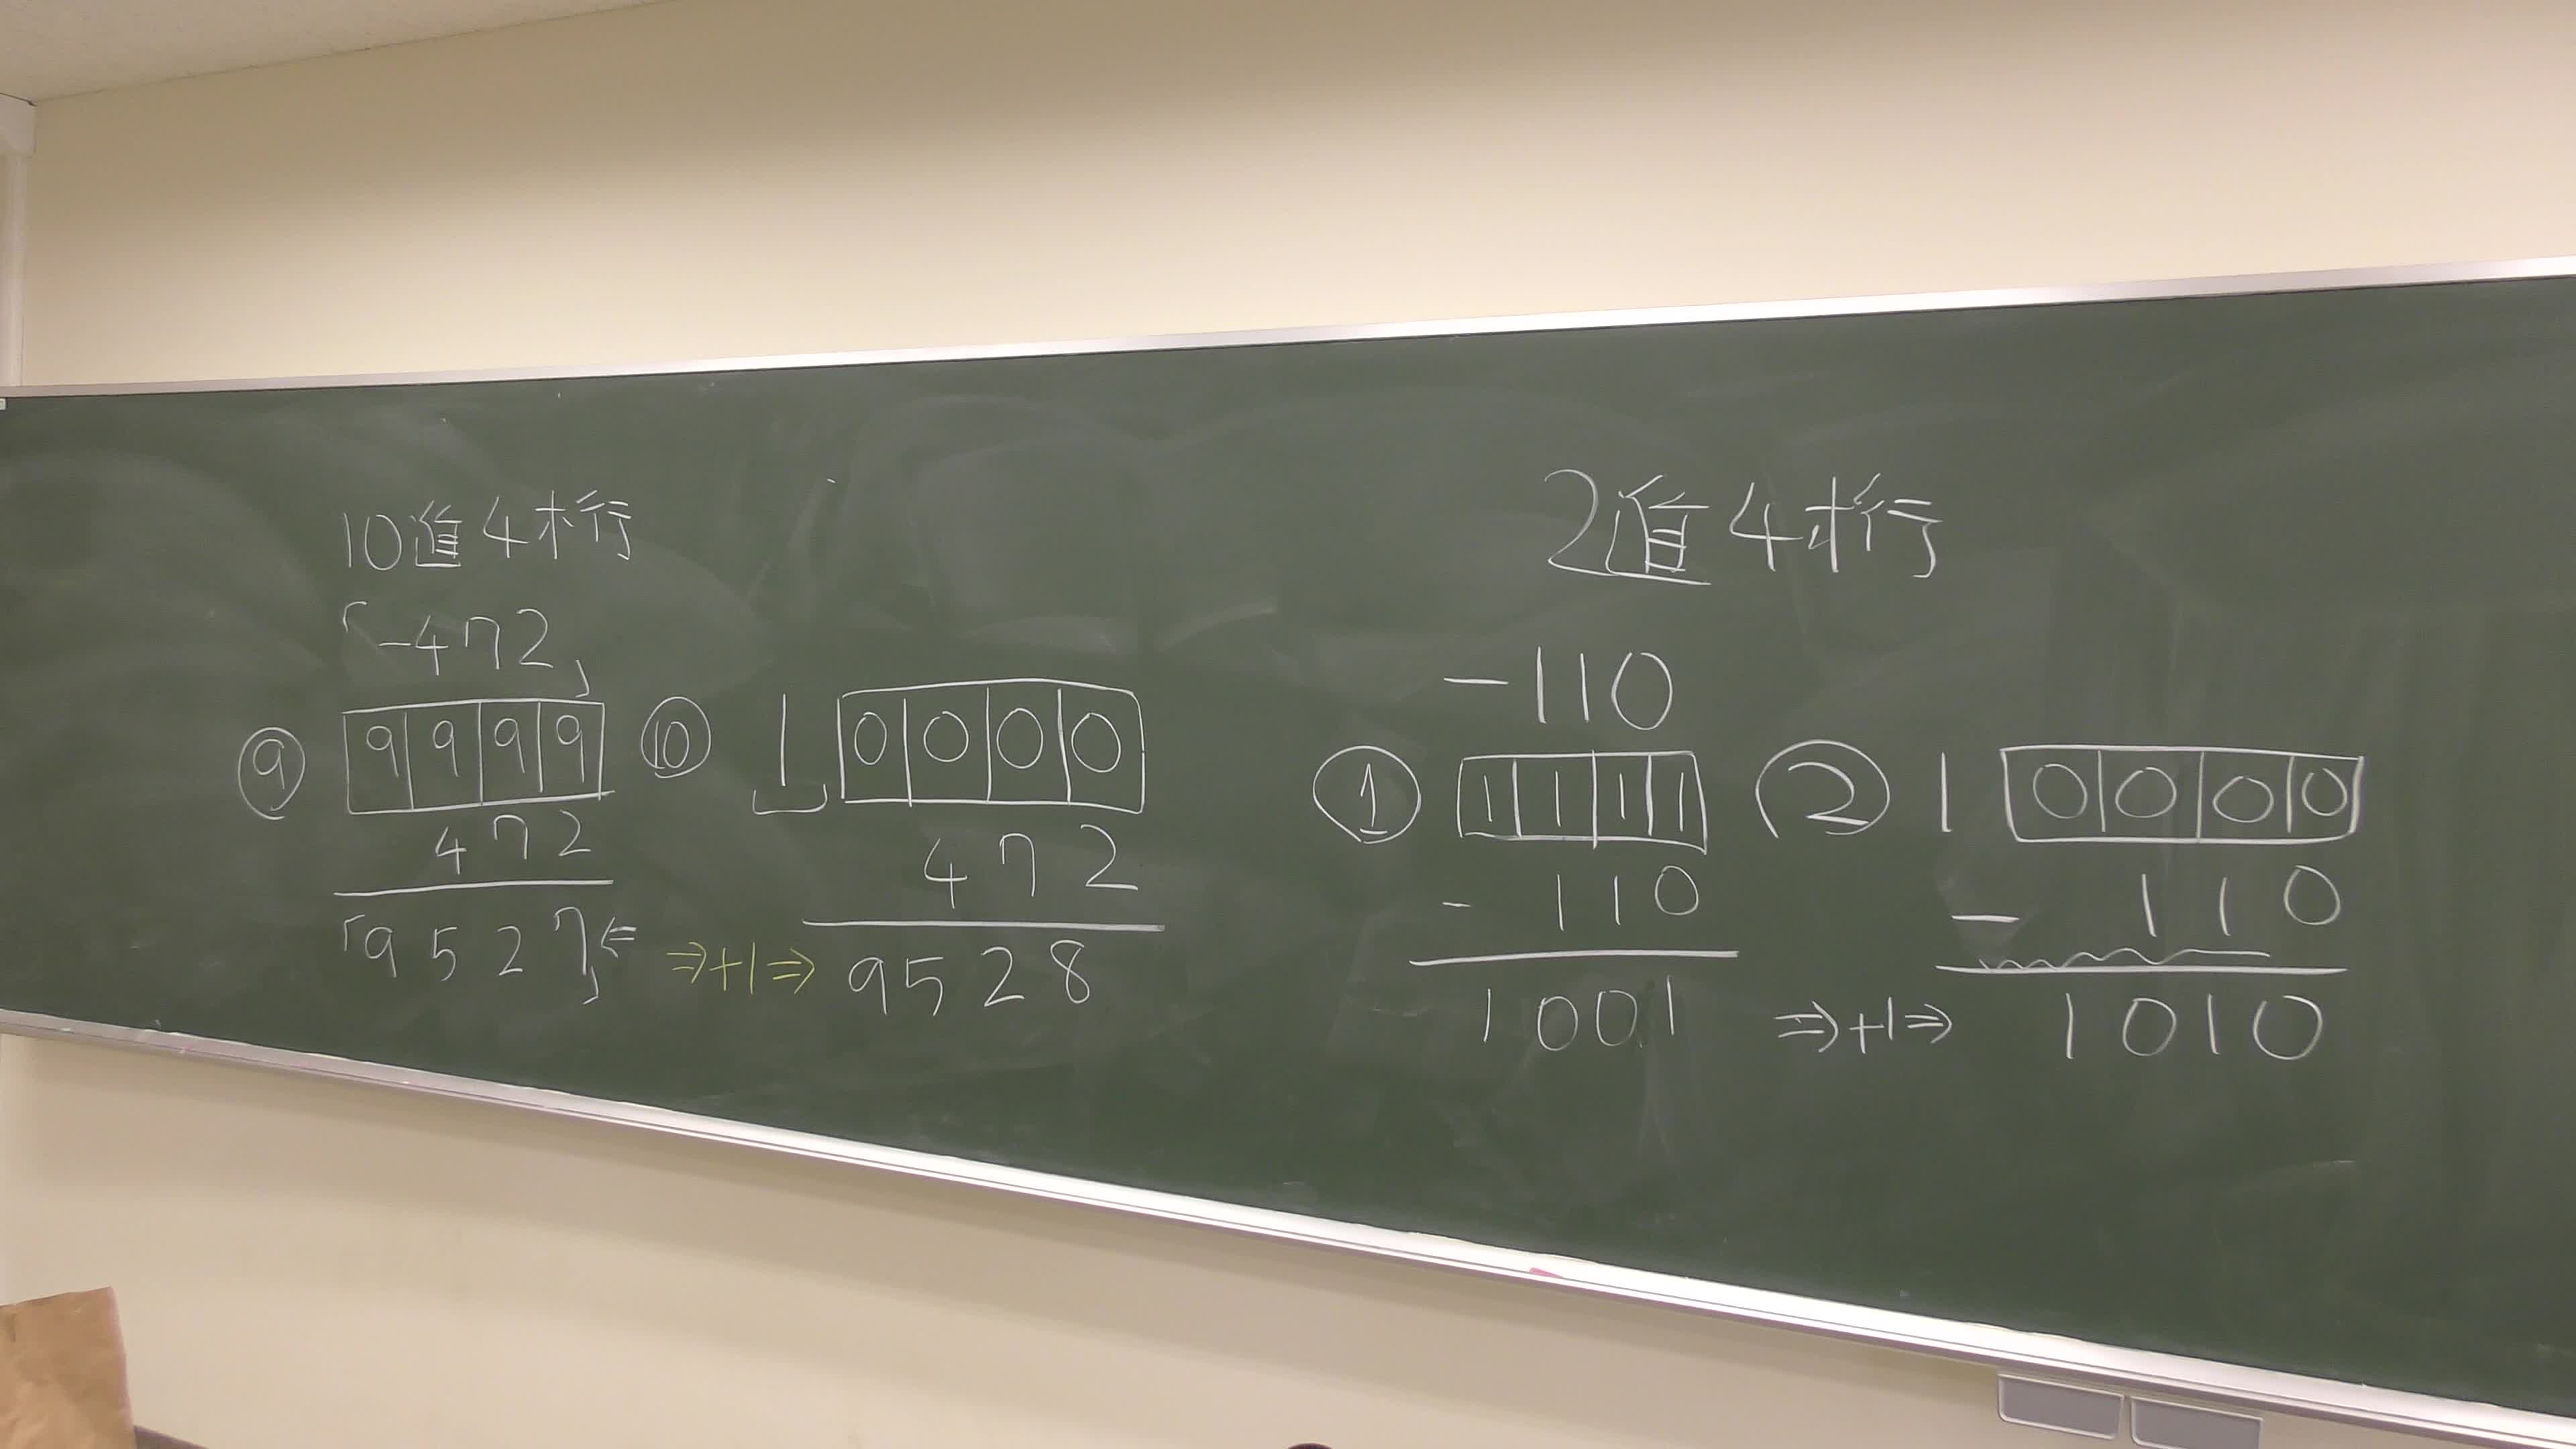 10進4桁
「-472」
⑨ 9999
472
「9527」⇐
⑩ 1 0000
472
⇒+1⇒ 9528
2進4桁
-110
① 1111
- 110
1001
② 1 0000
- 110
⇒+1⇒ 1010